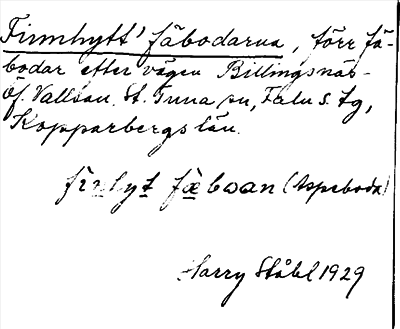 Finnhytt' fäbodarna, förr fä-
bodar efter vägen Billingsnäs-
Öf. Vallsan. St. Tuna sn, Falu s. tg,
Kopparbergs län.
fäboan (Aspeboda)
Harry Ståhl 1929